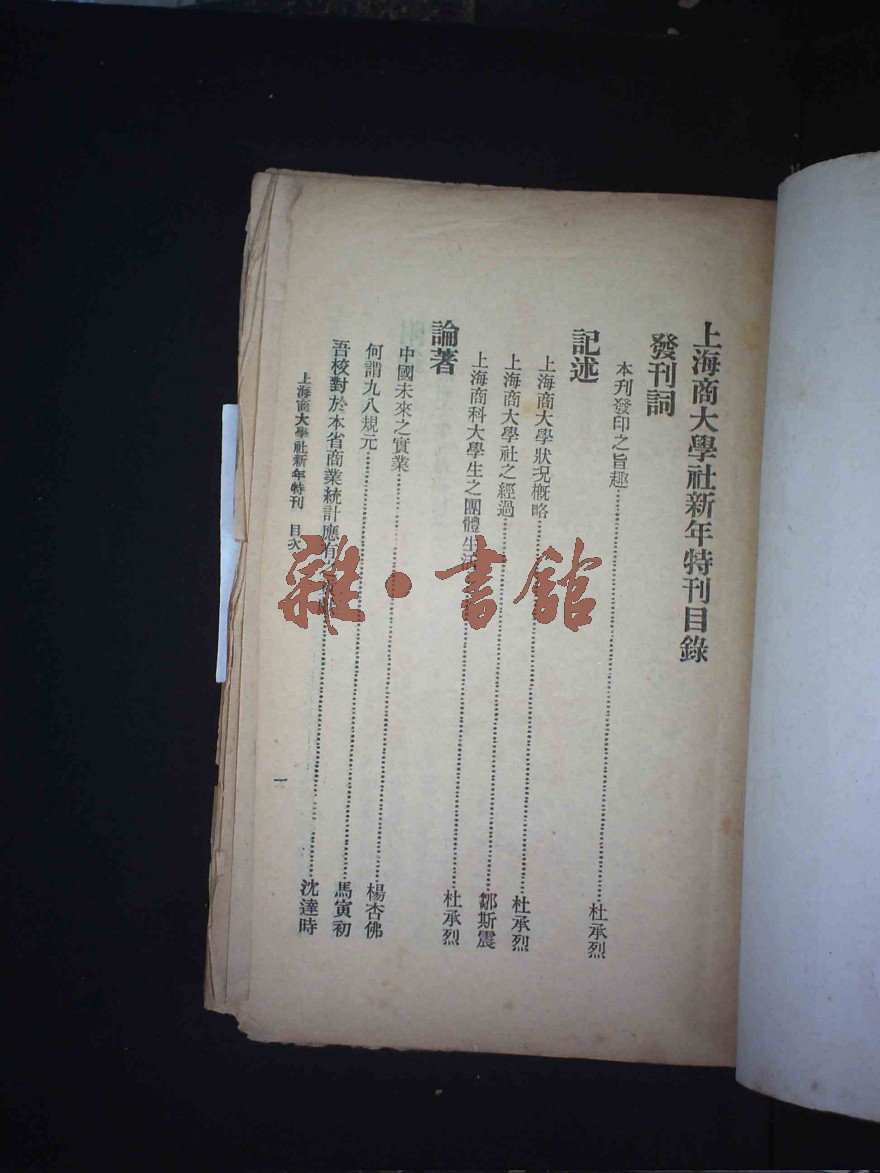 上海商大學社新年特刊目錄
發刊詞
本刊發印之旨趣……杜承烈
記述
上海商大學狀況槪略……杜承烈
上海商大學社之經過……鄒斯震
上海商科大學生之團體生活……杜承烈
論著
中國未來之實業……楊杏佛
何謂九八規元……馬寅初
吾校對於本省商業統計應有……沈達時
上海商大學社新年特刊 目次
一
雜·書館